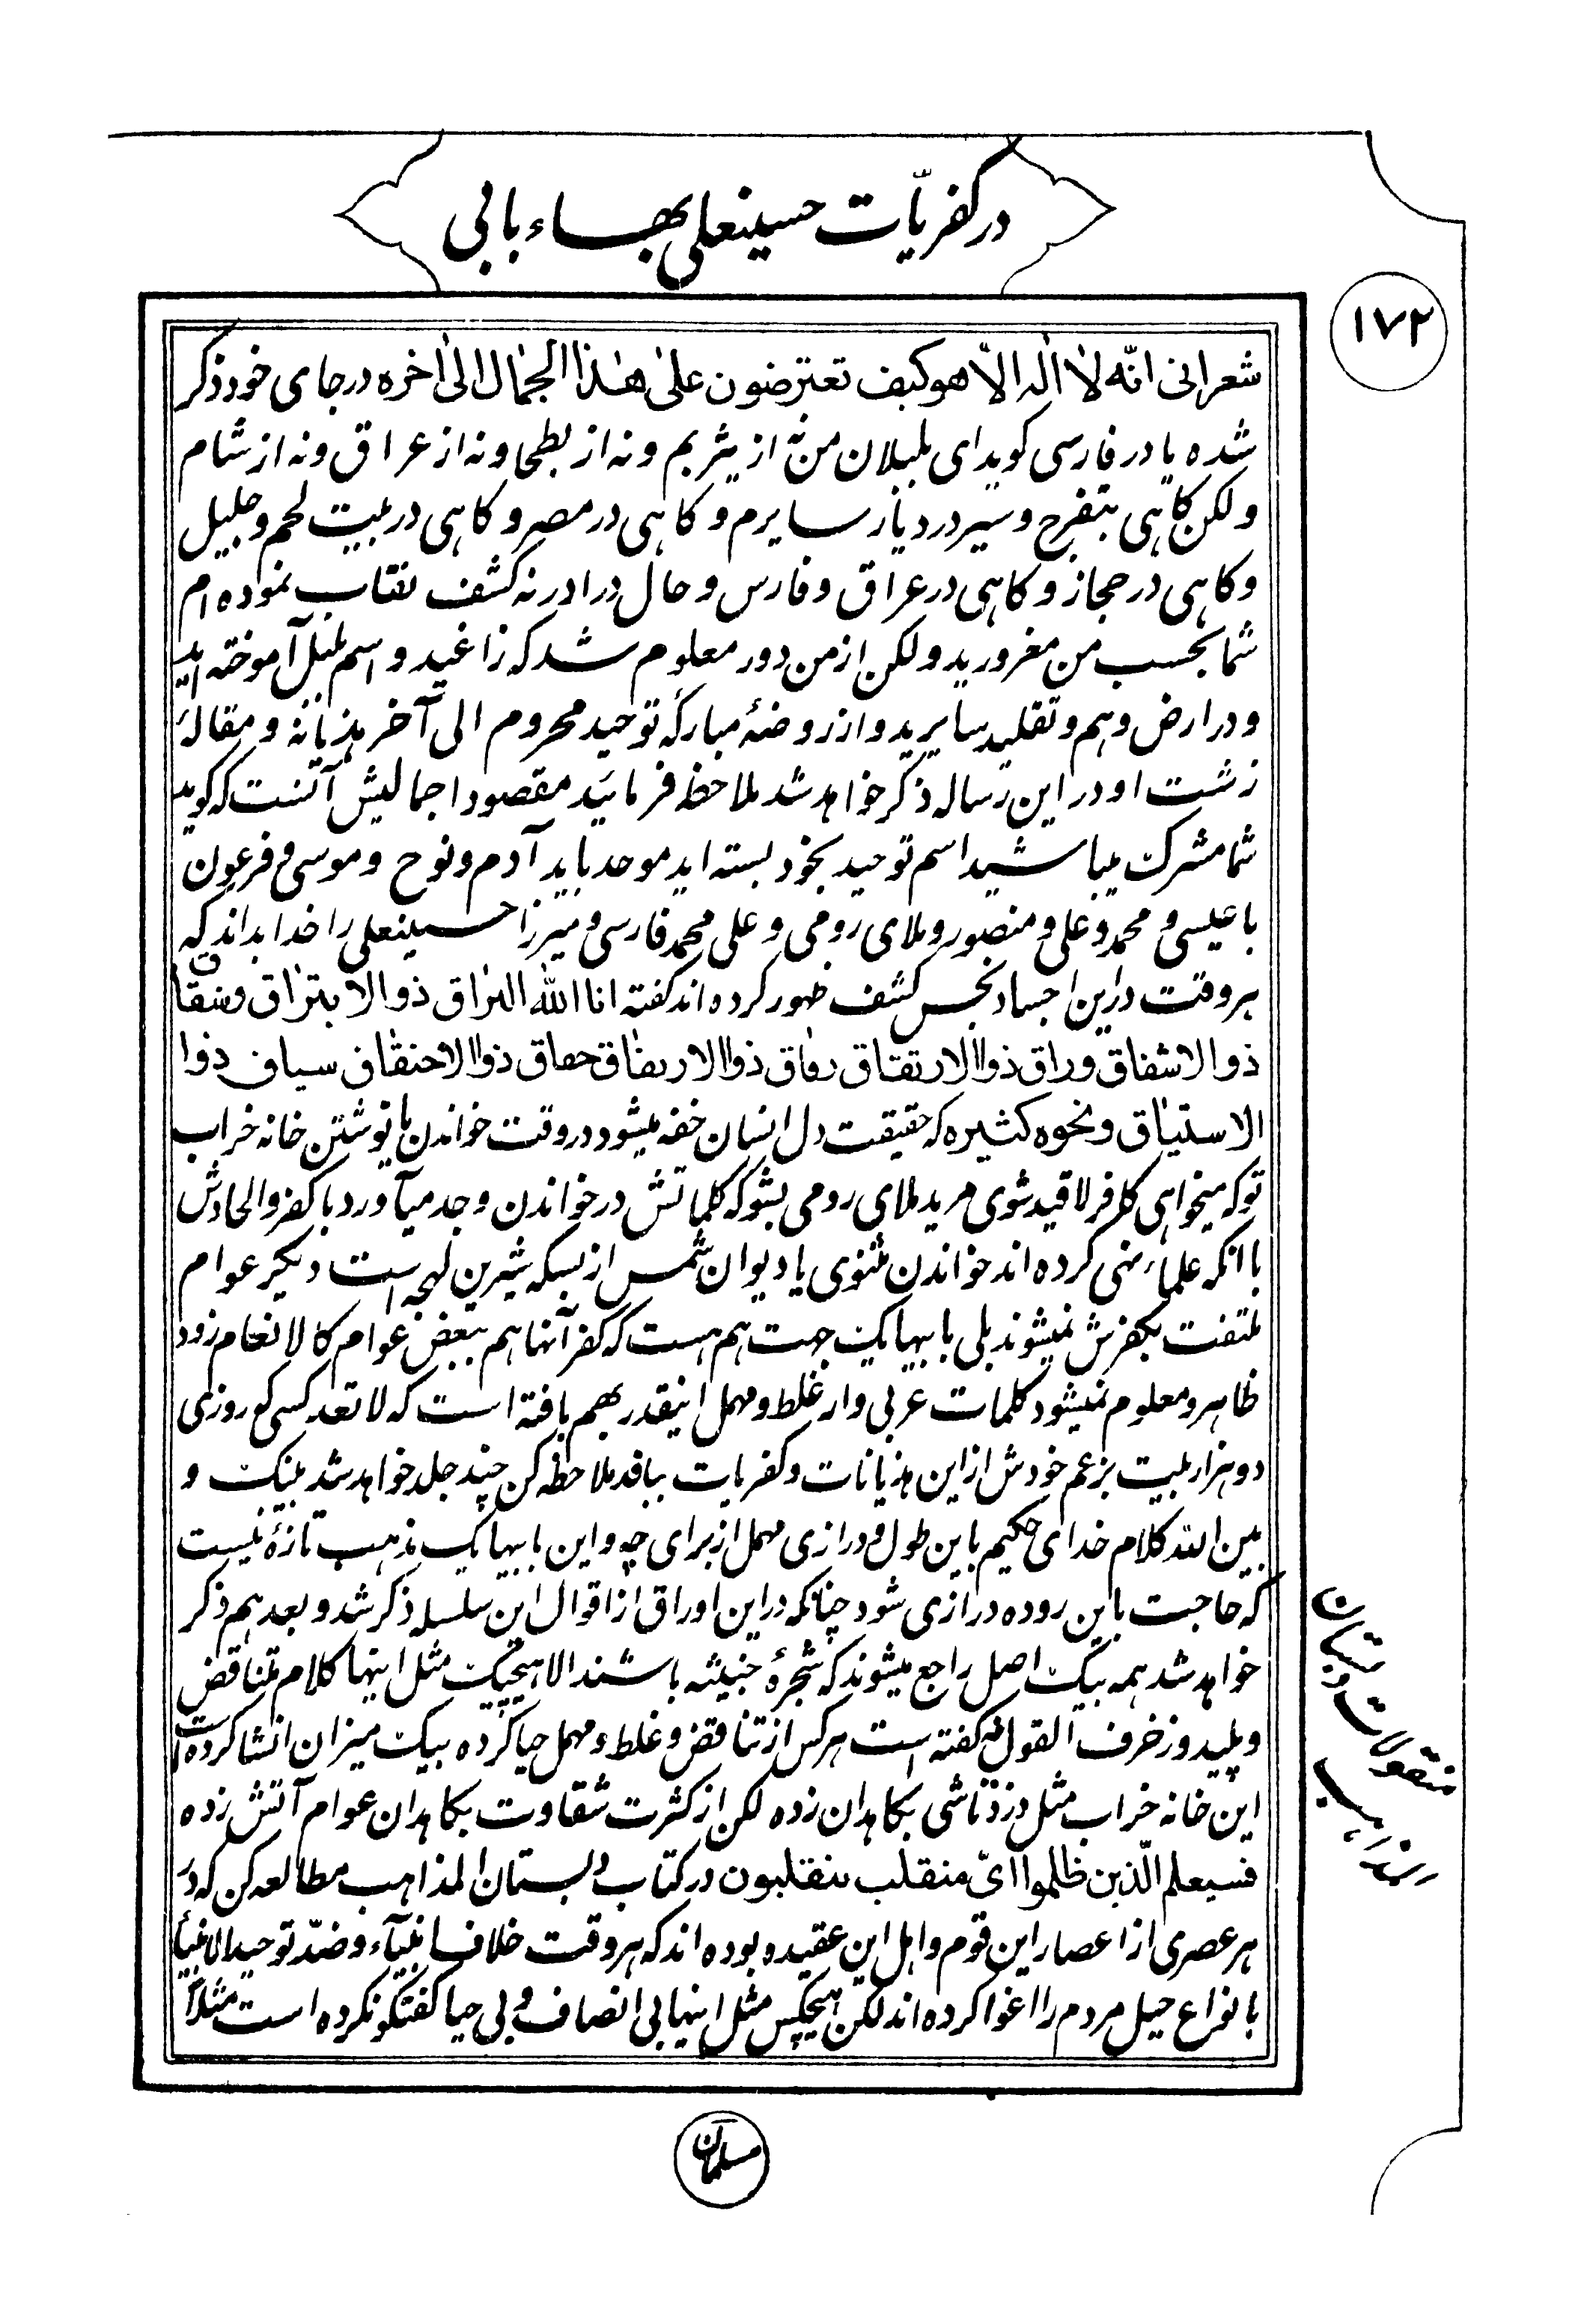 در کفریّات حسینعلی بهاء بابی
۱۷۲
شعرانی انّه لا اله الّا هو کیف تعترضون علی هذا الجمال الی اخره در جای خود ذکر
شده یا در فارسی کوید ای بلبلان من نه از یثربم و نه از بطحا و نه از عراق و نه از شام
ولکن کاهی بتفرج و سیر در دیار سایرم و کاهی در مصر و کاهی در بیت لحم و جلیل
و کاهی در حجاز و کاهی در عراق و فارس و حال در ادرنه کشف نقاب نموده ام
شما بحسب من مغرورید ولکن از من دور معلوم شد که زاغید و اسم بلبل آموخته اید
و در ارض وهم و تقلید سایرید و از روضهٔ مبارکه توحید محروم الی آخر هذیانه و مقالهٔ
زشت او در این رساله ذکر خواهد شد ملاحظه فرمائید مقصود اجمالیش آنست که کوید
شما مشرک میباشید اسم توحید بخود بسته اید موحد باید آدم و نوح و موسی و فرعون
با عیسی و محمد و علی و منصور و ملای رومی و علی محمد فارسی و میرزا حسینعلی را خدا بداند که
هر وقت در این اجساد نجس کشف ظهور کرده اند کفته انا الله البراق ذو الابتراق و شقاق
ذو الاشقاق وراق ذو الارتقاق رفاق ذو الارتفاق حقاق ذو الاحتقاق سیاق ذوا
الاستیاق و نحوه کثیره که حقیقت دل انسان خفه میشود در وقت خواندن یا نوشتن خانه خراب
تو که میخواهی کافر لاقید شوی مرید ملای رومی بشو که کلماتش در خواندن وجد میآورد با کفر و الحادش
با انکه علماء نهی کرده اند خواندن مثنوی یا دیوان شمس از بسکه شیرین لهجه است دیگر عوام
ملتفت بکفرش نمیشوند بلی بابیها یک جهت هم هست که کفر آنها هم ببعض عوام کالانعام زود
ظاهر و معلوم نمیشود کلمات عربی وار غلط و مهمل اینقدر بهم بافته است که لاتعد کسی که روزی
دو هزار بیت بزعم خودش از این هذیانات و کفریات ببافد ملاحظه کن چند جلد خواهد شد بینک و
بین الله کلام خدای حکیم باین طول و درازی مهمل از برای چه و این بابیها یک مذهب تازهٔ نیست
که حاجت باین روده درازی شود چنانکه در این اوراق از اقوال این سلسله ذکر شد و بعد هم ذکر
خواهد شد همه بیک اصل راجع میشوند که شجرهٔ خبیثه باشند الا هیچیک مثل اینها کلام متناقض
و پلید و زخرف القول نکفته است هر کس از تناقض و غلط و مهمل حیا کرده بیک میزان انشا کرده است
این خانه خراب مثل دزد ناشی بکاهدان زده لکن از کثرت شقاوت بکاهدان عوام آتش زده
فسیعلم الّذین ظلموا ایّ منقلب ینقلبون در کتاب دبستان المذاهب مطالعه کن که در
هر عصری از اعصار این قوم و اهل این عقیده بوده اند که هر وقت خلاف انبیآء و ضدّ توحید الانبیآ
بانواع حیل مردم را اغوا کرده اند لکن هیچکس مثل اینها بی انصاف و بی حیا کفتکو نکرده است مثلاً
منقولات دبستان
المذاهب
مسلمان